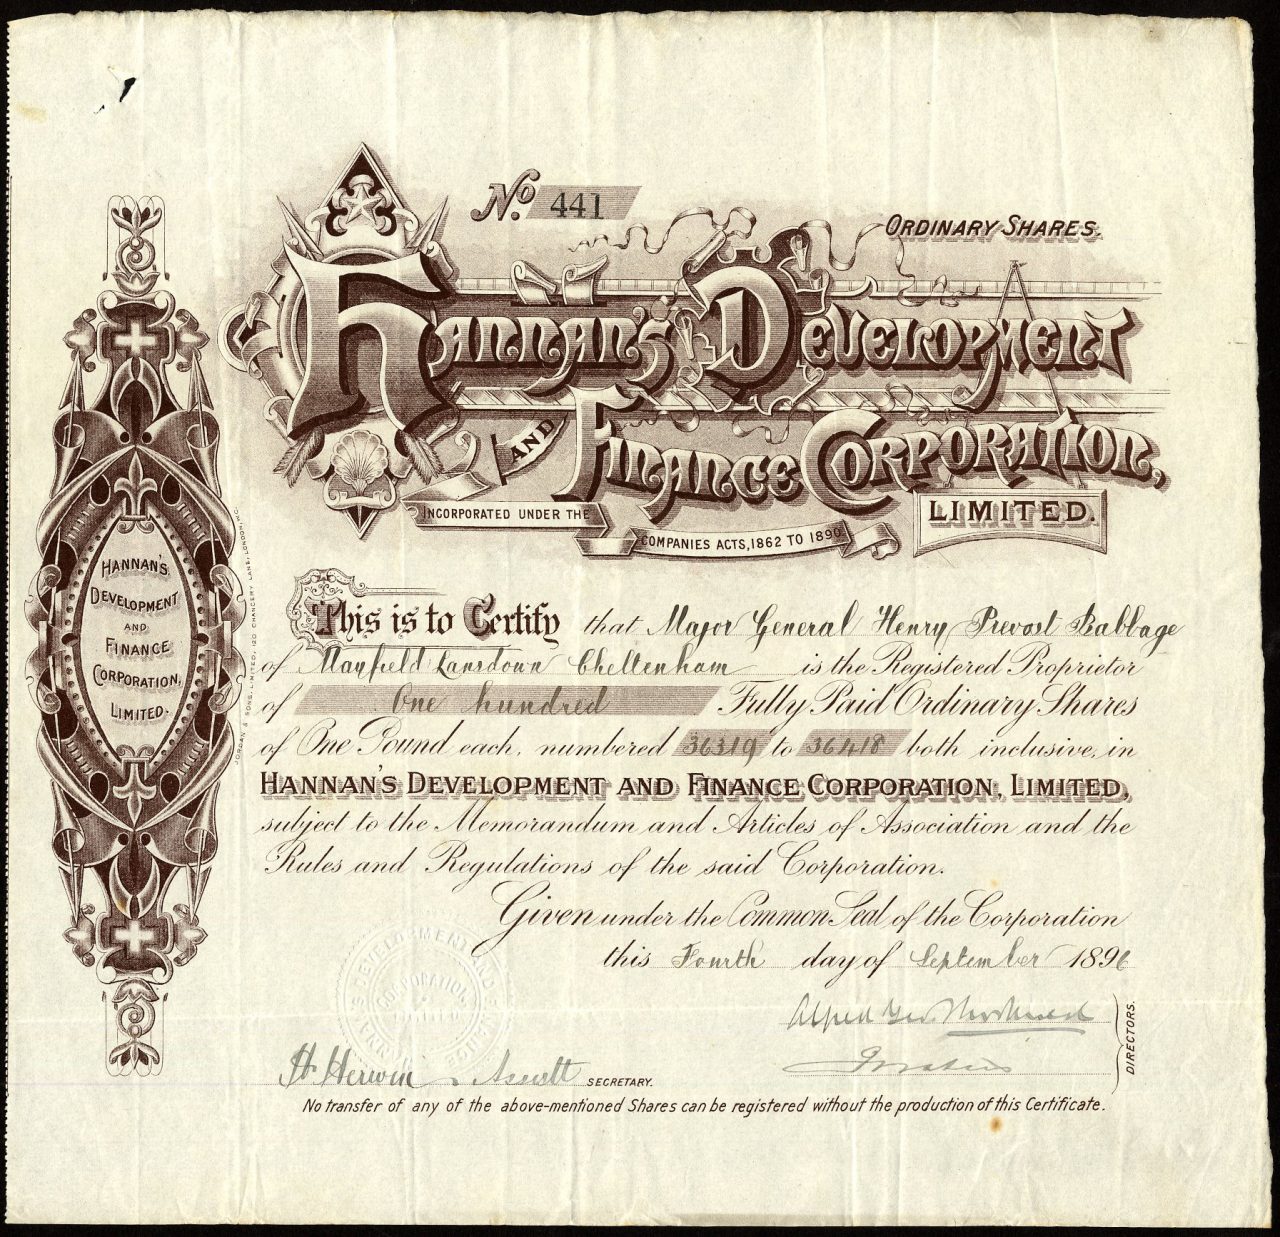 No. 441
ORDINARY SHARES.
HANNAN'S DEVELOPMENT
AND FINANCE CORPORATION,
LIMITED.
INCORPORATED UNDER THE
COMPANIES ACTS, 1862 TO 1890.
HANNAN'S
DEVELOPMENT
AND
FINANCE
CORPORATION,
LIMITED.
JORDAN & SONS, LIMITED, 120 CHANCERY LANE, LONDON, W.C.
This is to Certify that Major General Henry Prevost Babbage
of Mayfield Lansdown Cheltenham is the Registered Proprietor
of One hundred Fully Paid Ordinary Shares
of One Pound each, numbered 36319 to 36418 both inclusive, in
HANNAN'S DEVELOPMENT AND FINANCE CORPORATION, LIMITED,
subject to the Memorandum and Articles of Association and the
Rules and Regulations of the said Corporation.
Given under the Common Seal of the Corporation
this Fourth day of September 1896
Alfred Geo.
DIRECTORS.
H. Herwin
SECRETARY.
No transfer of any of the above-mentioned Shares can be registered without the production of this Certificate.